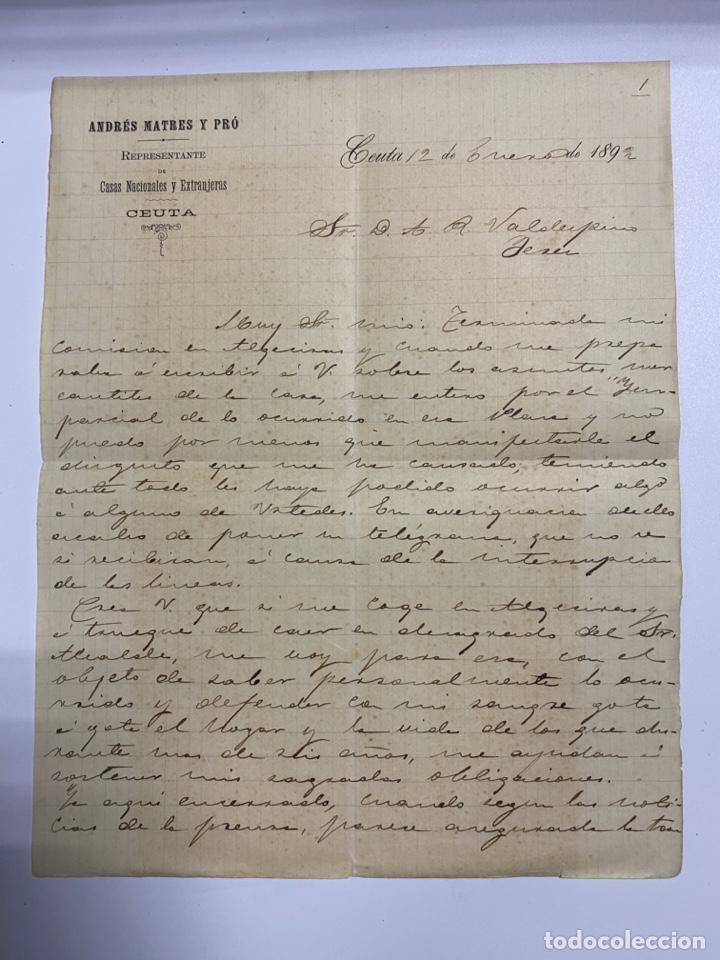 1
ANDRÉS MATRES Y PRÓ
REPRESENTANTE
DE
Casas Nacionales y Extranjeras
CEUTA
Ceuta 12 de Enero de 1892
Sr. D. A. R. Valdespino
Jerez
Muy Sr. mio: Terminada mi
comision en Algeciras y cuando me prepa
raba á escribir á V. sobre los asuntos mer
cantiles de la casa, me entero por el "Im-
parcial de lo ocurrido en esa Plaza y no
puedo por menos que manifestarle el
disgusto que me ha causado, temiendo
ante todo les haya podido ocurrir algo
á alguno de Ustedes. En averiguacion de ello
acabo de poner un telégrama, que no se
si recibiran, á causa de la interrupcion
de las lineas.
Crea V. que si me coge en Algeciras y
á trueque de caer en desagrado del Sr.
Alcalde, me voy para esa, con el
objeto de saber personalmente lo ocu-
rrido y defender con mi sangre gota
á gota el hogar y la vida de los que du-
rante mas de seis años, me ayudan á
sostener mis sagradas obligaciones.
Ya aqui encerrado, cuando segun las noti-
cias de la prensa, parece asegurada la tran
todocoleccion.net